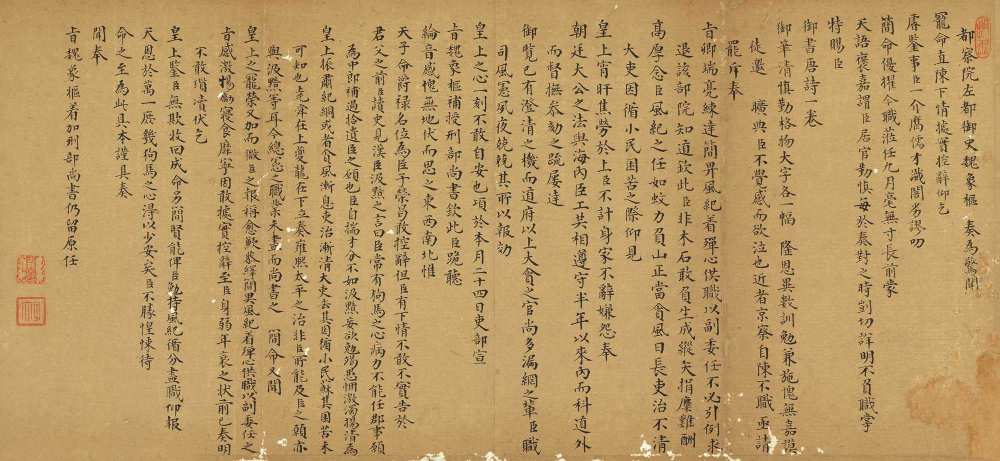 都察院左都御史魏象樞 奏為驚聞
寵命直陳下情據實控辭仰乞
睿鑒事臣一介庸儒才識闇劣謬叨
簡命優擢今職蒞任九月毫無寸長前蒙
天語褒嘉謂臣居官勤慎每於奏對之時剴切詳明不負職掌
特賜臣
御書唐詩一卷
御筆清慎勤格物大字各一幅 隆恩異數訓勉兼施愧無嘉謨
徒邀 曠典臣不覺感而欲泣也近者京察自陳不職亟請
罷斥奉
旨卿端亮練達簡畀風紀着殫心供職以副委任不必引例求
退該部院知道欽此臣非木石敢負生成縱矢捐糜難酬
高厚念臣風紀之任如蚊力負山正當貪風日長吏治不清
大吏因循小民困苦之際仰見
皇上宵旰焦勞於上臣不計身家不辭嫌怨奉
朝廷大公之法與海內臣工共相遵守半年以來內而科道外
而督撫參劾之疏屢達
御覽已有澄清之機而道府以上大貪之官尚多漏網之輩臣職
司風憲夙夜兢兢其所以報効
皇上之心一刻不敢自安也項於本月二十四日吏部宣
旨魏象樞補授刑部尚書欽此臣跪聽
綸音感愧無地伏而思之東西南北惟
天子命爵祿名位為臣子榮焉敢控辭但臣有下情不敢不實告於
君父之前臣讀史見漢臣汲黯之言曰臣常有狗馬之心病力不能任郡事願
為中郎補過拾遺臣之願也臣自揣才分不如汲黯妄欲勉竭愚悃激濁揚清為
皇上振肅紀綱或者貪風漸息吏治漸清大吏去其因循小民蘇其困苦未
可知也堯舜在上夔龍在下立奏雍熙太平之治非臣所能及臣之願亦
與汲黯等耳今總憲之職業未盡而尚書之 簡命又聞
皇上之寵榮又加而微臣之報稱愈歉恭繹簡畀風紀着殫心供職以副委任之
旨感激惕勵寢食靡寧因敢據實控辭至臣身弱年衰之狀前已奏明
不敢瑣瀆伏乞
皇上鑒臣無欺收回成命另簡賢能俾臣勉持風紀循分盡職仰報
天恩於萬一庶幾狗馬之心得以少安矣臣不勝惶悚待
命之至為此具本謹具奏
聞奉
旨魏象樞着加刑部尚書仍留原任